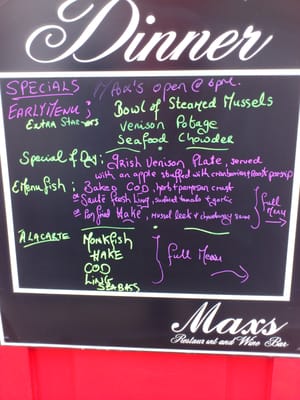 Dinner
SPECIALS Max's open @ 6pm.
EARLY MENU; Bowl of Steamed Mussels
EXTRA Starters Venison Potage
Seafood Chowder
Special of Day: Irish Venison Plate, served
with an apple stuffed with cranberries + roast parsnip
E.Menu fish: Baked COD, herb + parmesan crust
or Sauté fresh Ling, sundried tomato + garlic
or Pan fried Hake, mussel leek + chardonnay sauce
full
Menu
A LACARTE Monkfish
HAKE full Menu
COD
LING
SEABASS
Maxs
Restaurant and Wine Bar